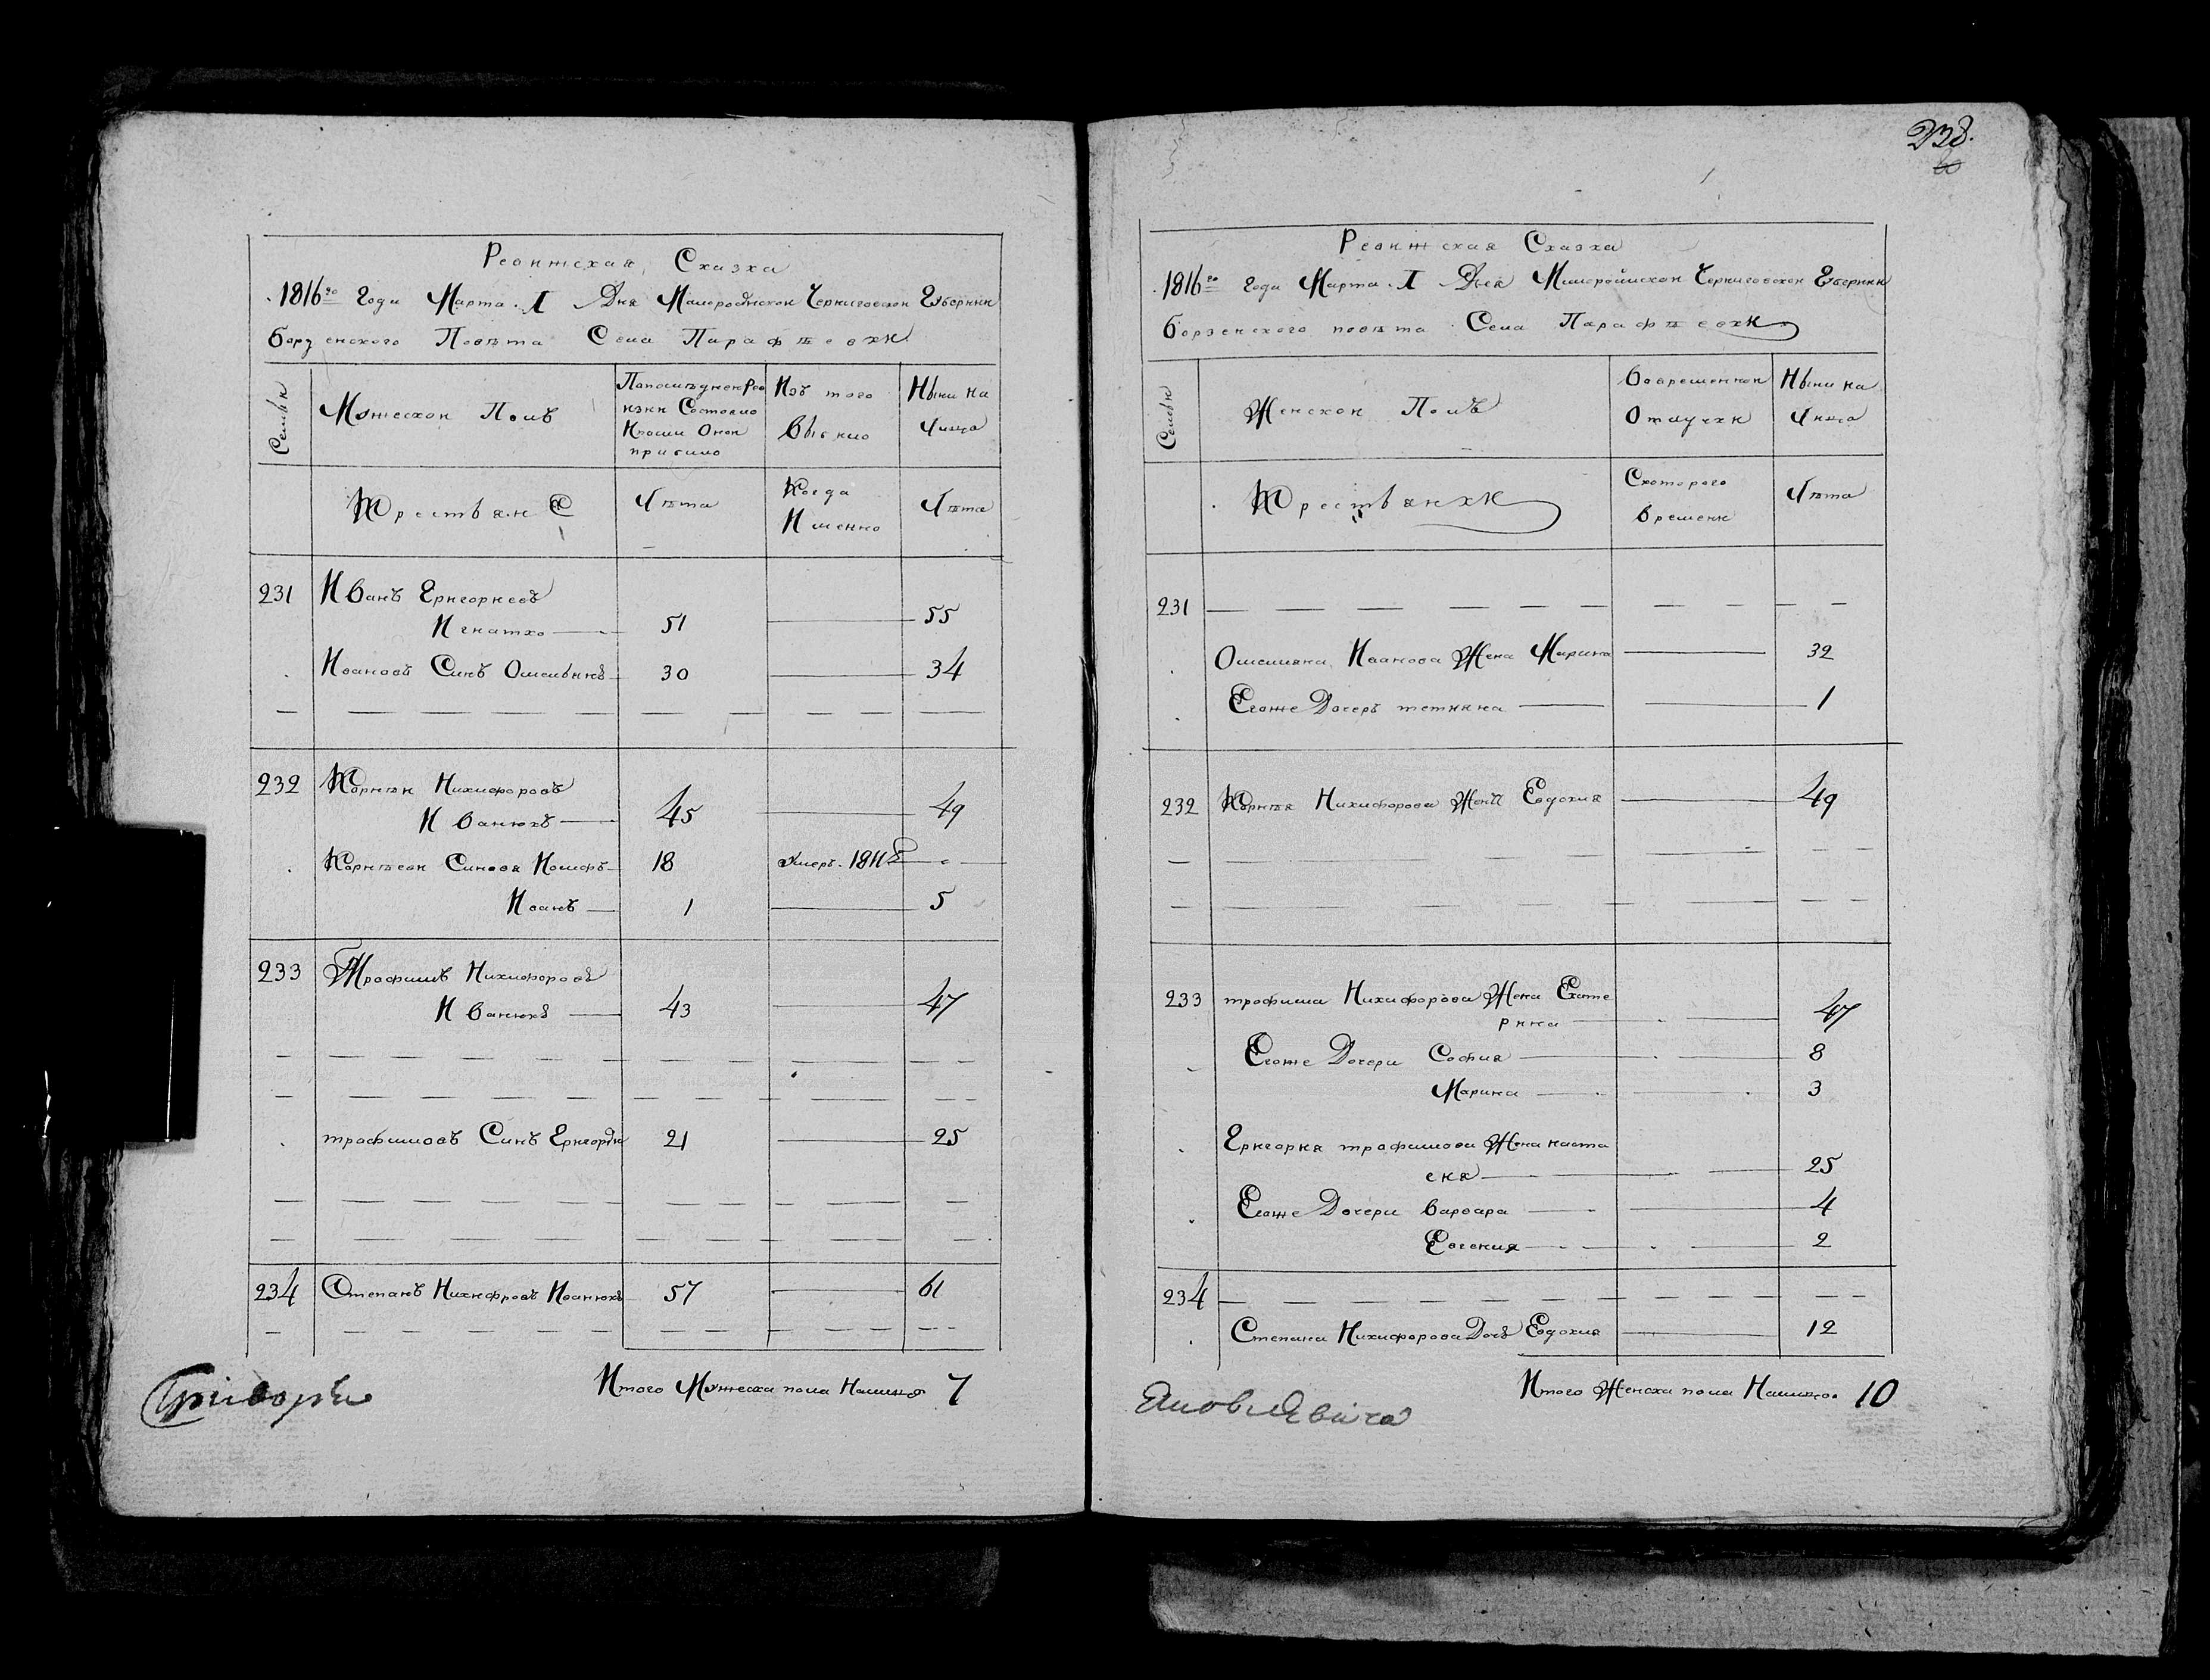 Ревижская Сказка
1816го Года Марта 1 Дня Малоросійской Черниговской Губерніи
борзенского Повѣта Села Парафѣевки
Семьи
Мужеской Полъ
Попослѣдней Ре
визіи Состояло
Ипосли Оной
прибило
Изъ того
выбило
Ныни на
лицо
Крестьянѣ
Лѣта
Когда
Именно
Лѣта
231 Иванъ Григориевъ
Игнатко 51 55
Ивановъ Синъ Омелья
нъ 30 34
232 Корнѣй Никифоровъ
Иванюкъ 45 49
Корнѣеви Синовя Иосифъ 18 умеръ 1811
Иванъ 1 5
233 Трофимъ Никифоровъ
Иванюкъ 43 47
трофимовъ Синъ Григорій 21 25
234 Степанъ Никифровъ Иванюкъ 57 61
Итого Мужеска пола Налицо 7
Григорій
238.
Ревижская Сказка
1816го года Марта 1 Дня Малоросійской Черниговской Губерніи
борзенского повѣта Села Парафѣевки
Семьи
Женской Полъ
Вовременной
Отлучки
Ныни на
лицо
Крестьянки
Скоторого
времени
Лѣта
231
Омеляна Иванова Жена Марина 32
Егоже Дочеръ тетияна 1
232 Корнѣя Никифорова Жена Евдокия 49
233 трофима Никифорова Жена Екате
рина 47
Егоже Дочери София 8
Марина 3
Григория трофимова Жена наста
сия 25
Егоже Дочери варвара 4
Евгения 2
234
Степана Никифорова Дочъ Евдокия 12
Итого Женска пола Налицо 10